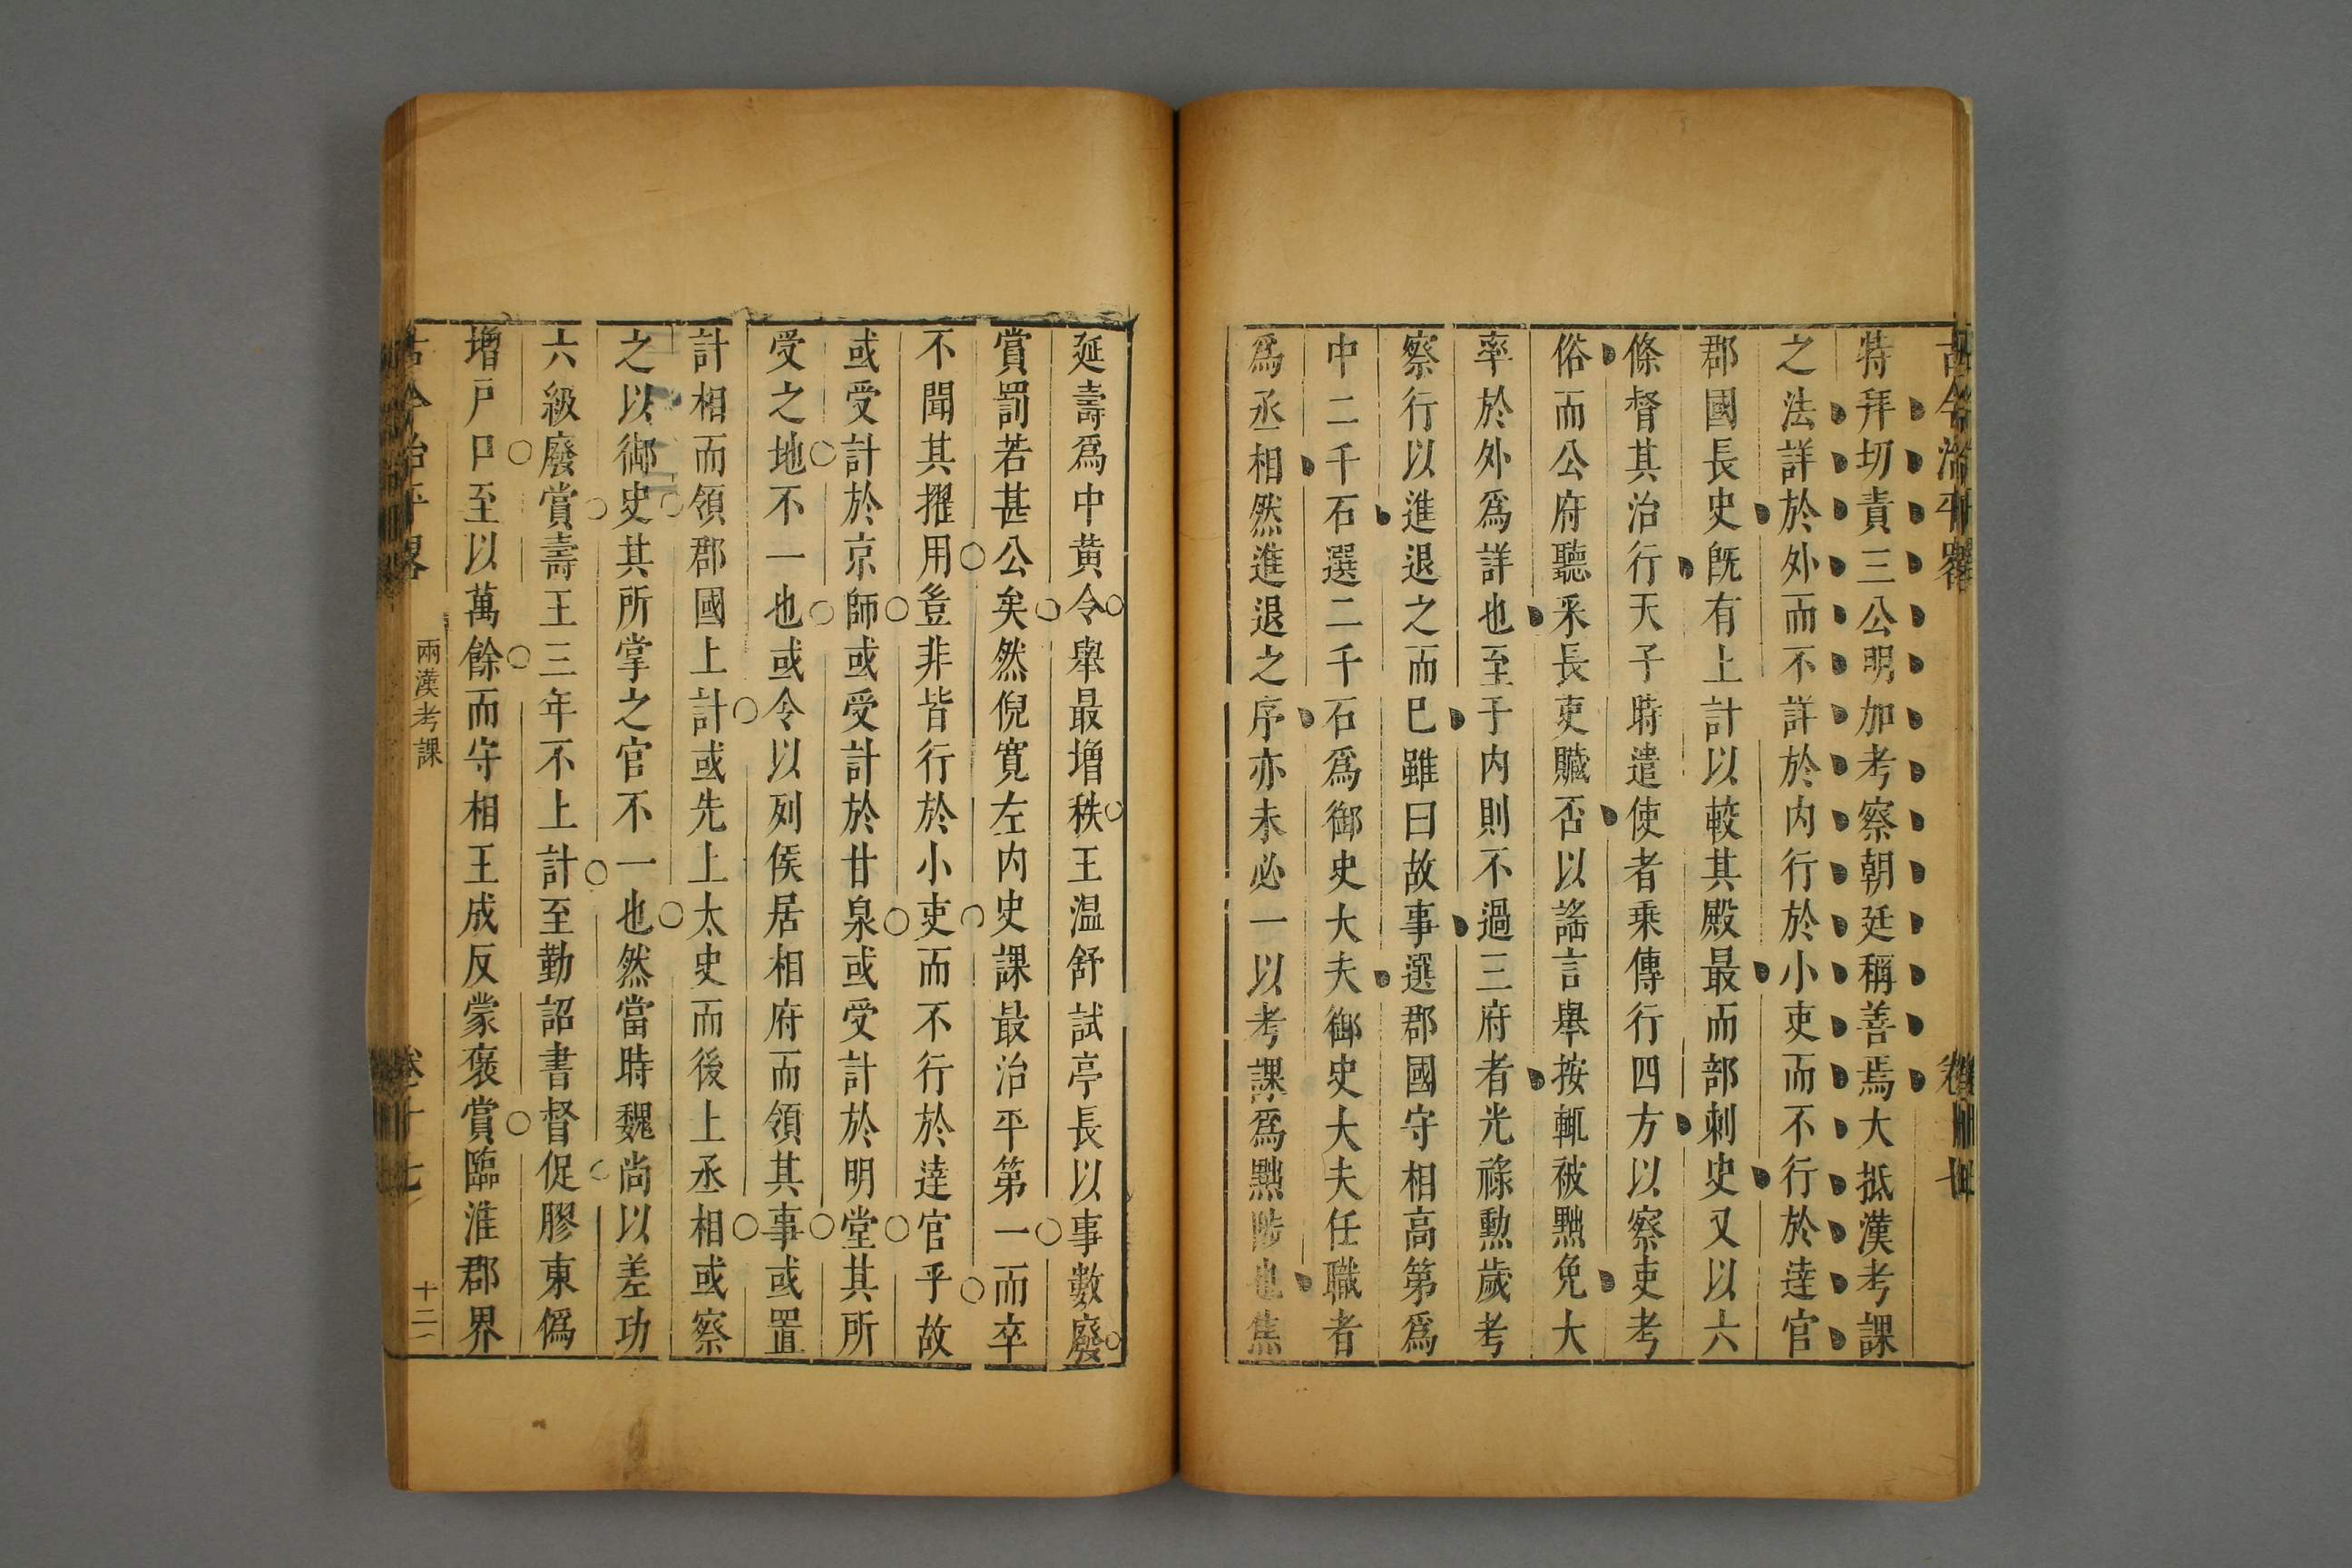 古今治平畧
卷十七
特拜切責三公明加考察朝廷稱善焉大抵漢考課
之法詳於外而不詳於内行於小吏而不行於逹官
郡國長史旣有上計以較其殿最而部刺史又以六
條督其治行天子時遣使者乗傳行四方以察吏考
俗而公府聽釆長吏贓否以謡言舉按輒被黜免大
率於外爲詳也至于内則不過三府者光祿勲歲考
察行以進退之而巳雖曰故事選郡國守相高第爲
中二千石選二千石爲御史大夫御史大夫任職者
爲丞相然進退之序亦未必一以考課爲黜陟也焦
延壽爲中黄令舉最增秩王温舒試亭長以事數廢
賞罰若甚公矣然倪寛左内史課最治平第一而卒
不聞其擢用豈非皆行於小吏而不行於逹官乎故
或受計於京師或受計於甘泉或受計於明堂其所
受之地不一也或令以列侯居相府而領其事或置
計相而領郡國上計或先上太史而後上丞相或察
之以御史其所掌之官不一也然當時魏尚以差功
六級廢賞壽王三年不上計至勤詔書督促膠東僞
增戸口至以萬餘而守相王成反蒙褒賞臨淮郡界
古今治平畧
兩漢考課
卷十七
十二